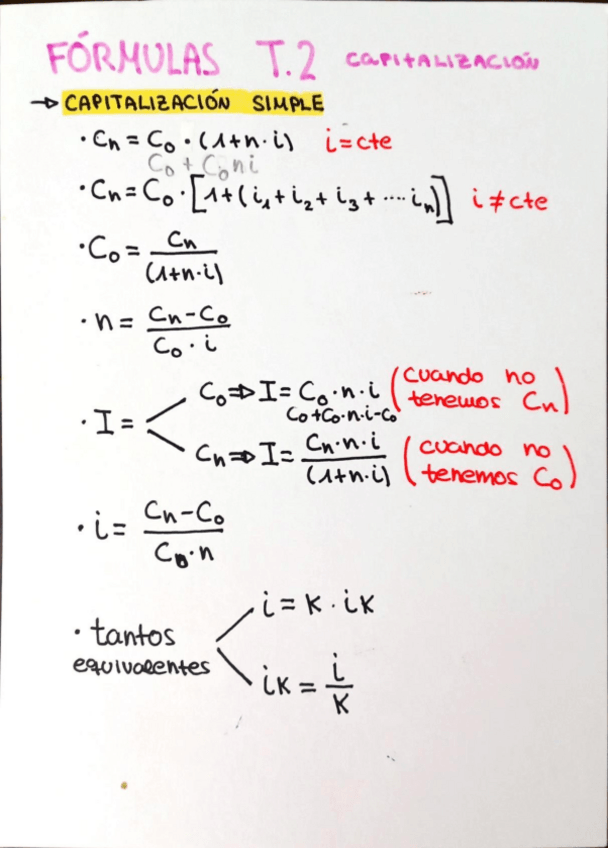 FÓRMULAS T.2 CAPITALIZACIÓN
→ CAPITALIZACIÓN SIMPLE
· Cn = C₀ · (1+n·i) i = cte
C₀ + C₀ni
· Cn = C₀ · [1+(i₁+i₂+i₃+····iₙ)] i ≠ cte
· C₀ = Cn / (1+n·i)
· n = Cn-C₀ / C₀ · i
· I =
C₀ ⇒ I = C₀·n·i (cuando no tenemos Cn)
C₀+C₀·n·i-C₀
Cn ⇒ I = Cn·n·i / (1+n·i) (cuando no tenemos C₀)
· i = Cn-C₀ / C₀·n
· tantos
equivalentes
i = K · iK
iK = i / K